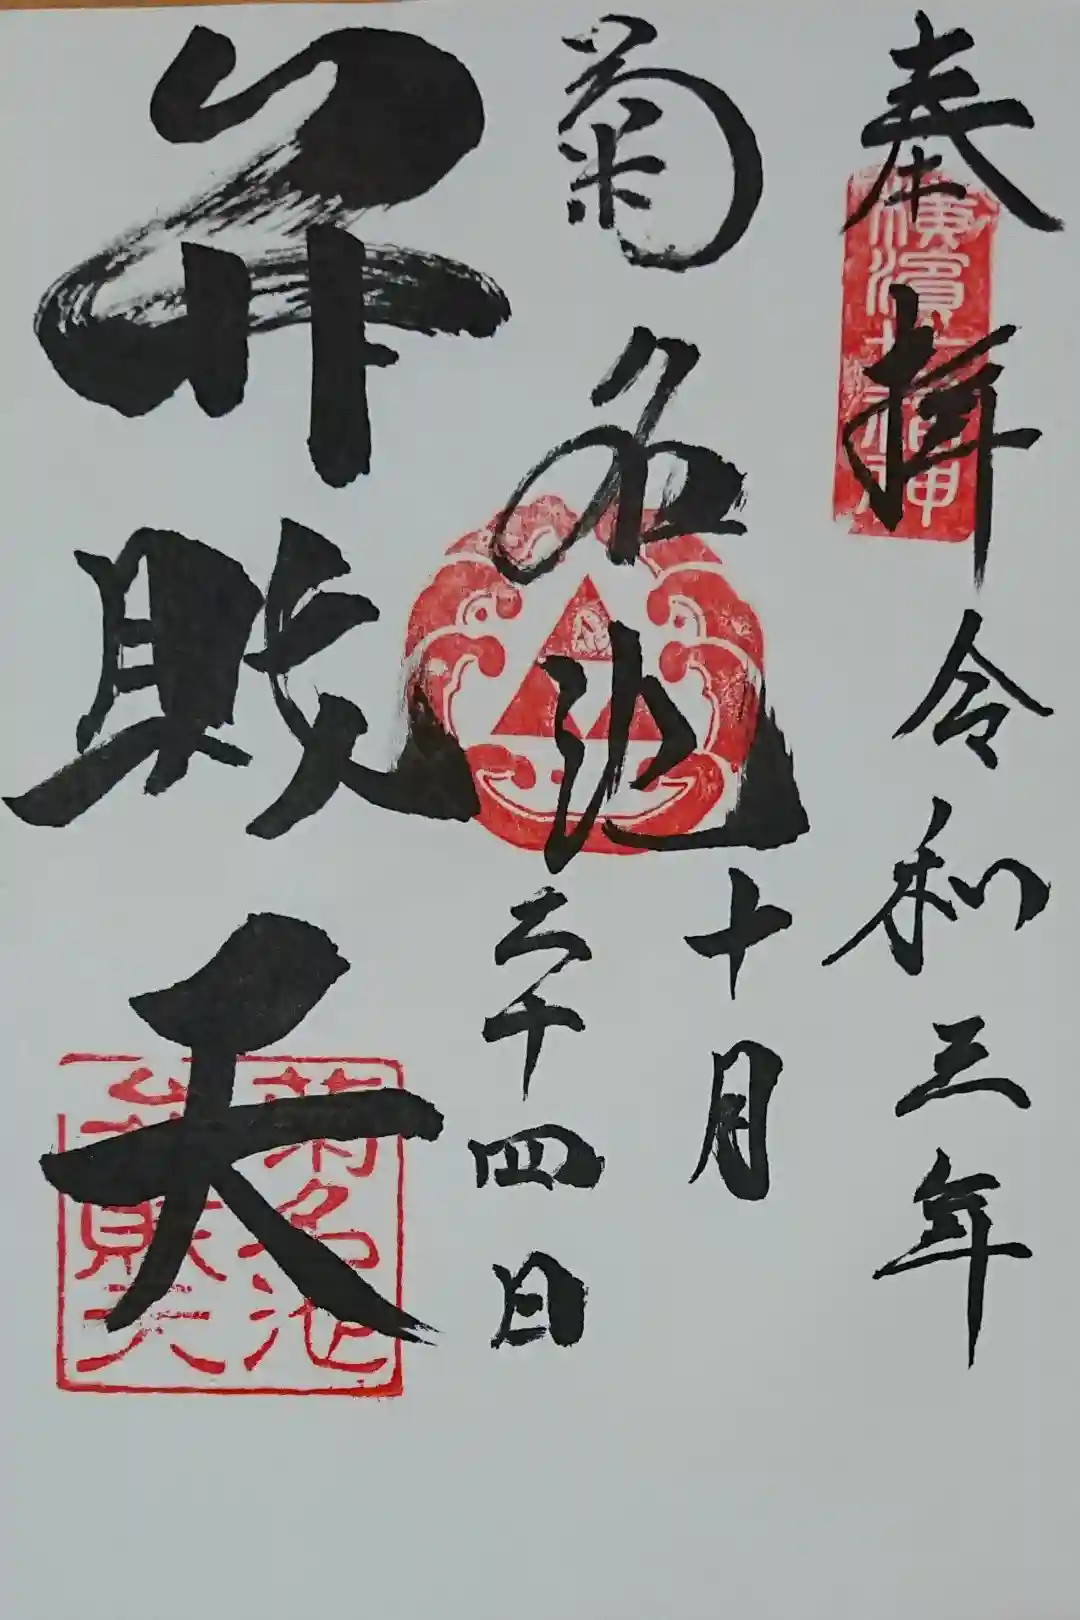 奉拝
令和三年
十月
二十四日
菊名池
弁財天
横濱七福神
菊名池
弁財天